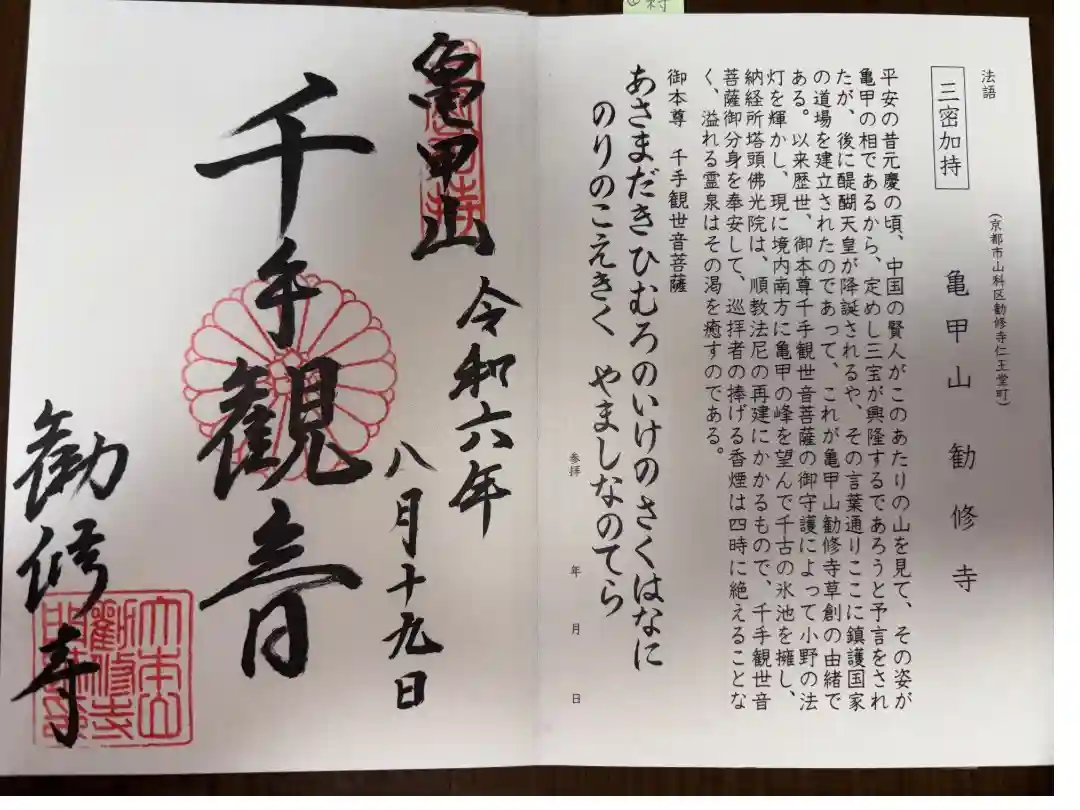 法語
三密加持
(京都市山科区勧修寺仁王堂町)
亀甲山 勧修寺
平安の昔元慶の頃、中国の賢人がこのあたりの山を見て、その姿が
亀甲の相であるから、定めし三宝が興隆するであろうと予言をされ
たが、後に醍醐天皇が降誕されるや、その言葉通りここに鎮護国家
の道場を建立されたのであって、これが亀甲山勧修寺草創の由緒で
ある。以来歴世、御本尊千手観世音菩薩の御守護によって小野の法
灯を輝かし、現に境内南方に亀甲の峰を望んで千古の氷池を擁し、
納経所塔頭佛光院は、順教法尼の再建にかかるもので、千手観世音
菩薩御分身を奉安して、巡拝者の捧げる香煙は四時に絶えることな
く、溢れる霊泉はその渇を癒すのである。
御本尊 千手観世音菩薩
あさまだきひむろのいけのさくはなに
のりのこえきく やましなのてら
参拝 年 月 日
亀甲山
令和六年
八月十九日
千手観音
勧修寺